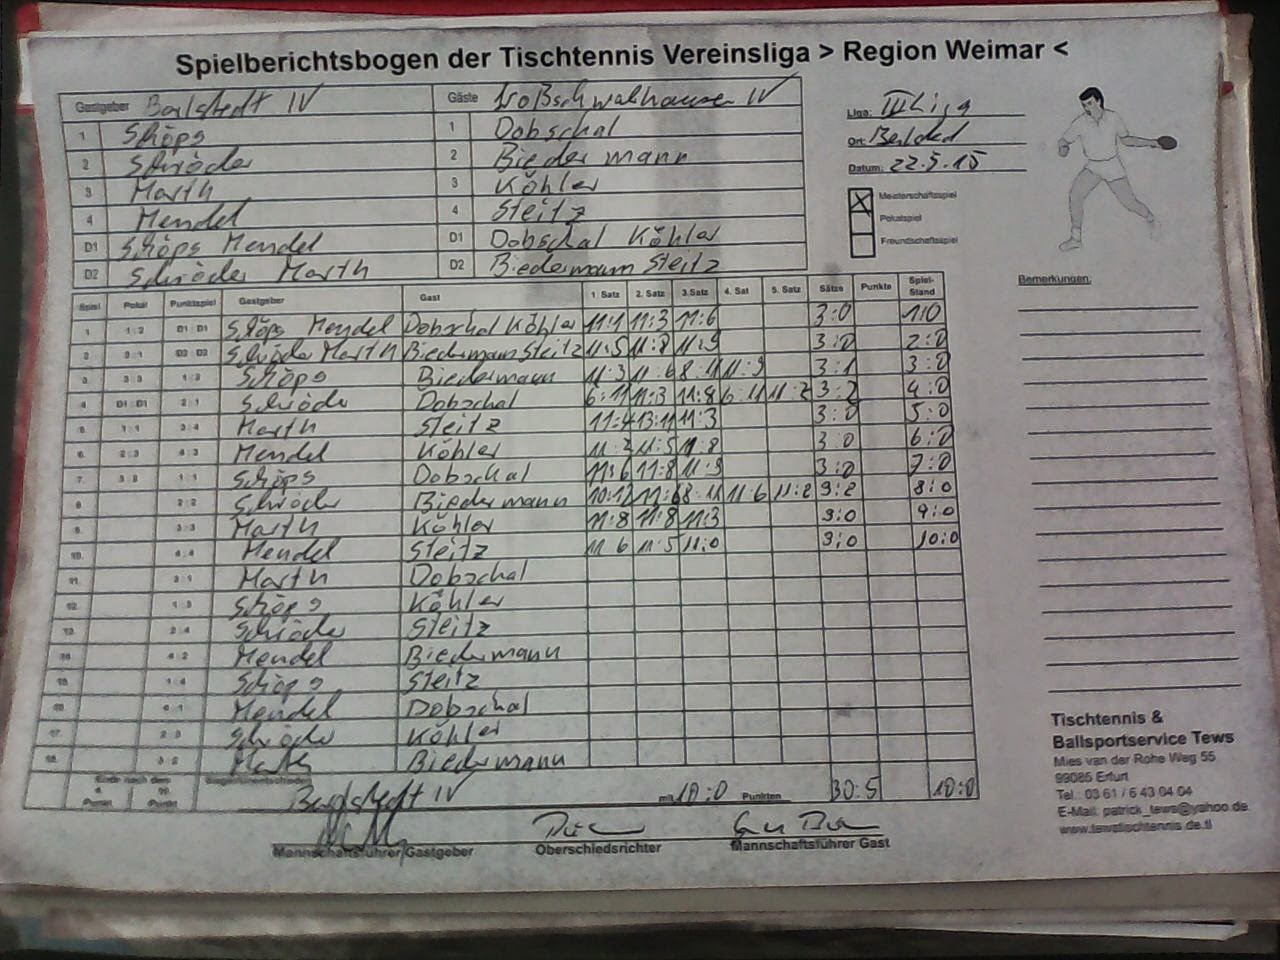 Spielberichtsbogen der Tischtennis Vereinsliga > Region Weimar <
Gastgeber Berlstedt IV Gäste Großschwabhausen IV
Liga: III Liga
1 Schöps 1 Dobschal
Ort: Berlstedt
2 Schröder 2 Biedermann
Datum: 22.5.15
3 Marth 3 Köhler
Meisterschaftsspiel
4 Mendel 4 Steitz
Pokalspiel
D1 Schöps Mendel D1 Dobschal Köhler
Freundschaftsspiel
D2 Schröder Marth D2 Biedermann Steitz
Bemerkungen:
Spiel Pokal Punktspiel Gastgeber Gast 1. Satz 2. Satz 3. Satz 4. Sat 5. Satz Sätze Punkte Spiel-Stand
1 1:2 D1:D1 Schöps Mendel Dobschal Köhler 11:1 11:3 11:6 3:0 1:0
2 2:1 D2:D2 Schröder Marth Biedermann Steitz 11:5 11:8 11:9 3:0 2:0
3 3:3 1:2 Schöps Biedermann 11:3 11:6 8:11 11:9 3:1 3:0
4 D1:D1 2:1 Schröder Dobschal 6:11 11:3 11:8 6:11 11:2 3:2 4:0
5. 1:1 3:4 Marth Steitz 11:4 13:11 11:3 3:0 5:0
6. 2:3 4:3 Mendel Köhler 11:2 11:5 11:8 3:0 6:0
7 3:2 1:1 Schöps Dobschal 11:6 11:8 11:9 3:0 7:0
8 2:2 Schröder Biedermann 10:12 11:6 8:11 11:6 11:2 3:2 8:0
9. 3:3 Marth Köhler 11:8 11:8 11:3 3:0 9:0
10. 4:4 Mendel Steitz 11 6 11:5 11:0 3:0 10:0
11. 3:1 Marth Dobschal
12. 1:3 Schöps Köhler
13. 2:4 Schröder Steitz
14. 4:2 Mendel Biedermann
15. 1:4 Schöps Steitz
16. 4:1 Mendel Dobschal
17. 2:3 Schröder Köhler
18. 3:2 Marth Biedermann
Ende nach dem
Punkt Punkt Berlstedt IV mit 10:0 Punkten 30:5 10:0
Mannschaftsführer Gastgeber Oberschiedsrichter Mannschaftsführer Gast
Tischtennis &
Ballsportservice Tews
Mies van der Rohe Weg 55
99085 Erfurt
Tel.: 03 61 / 6 43 04 04
E-Mail: patrick_tews@yahoo.de
www.tewstischtennis.de.tl